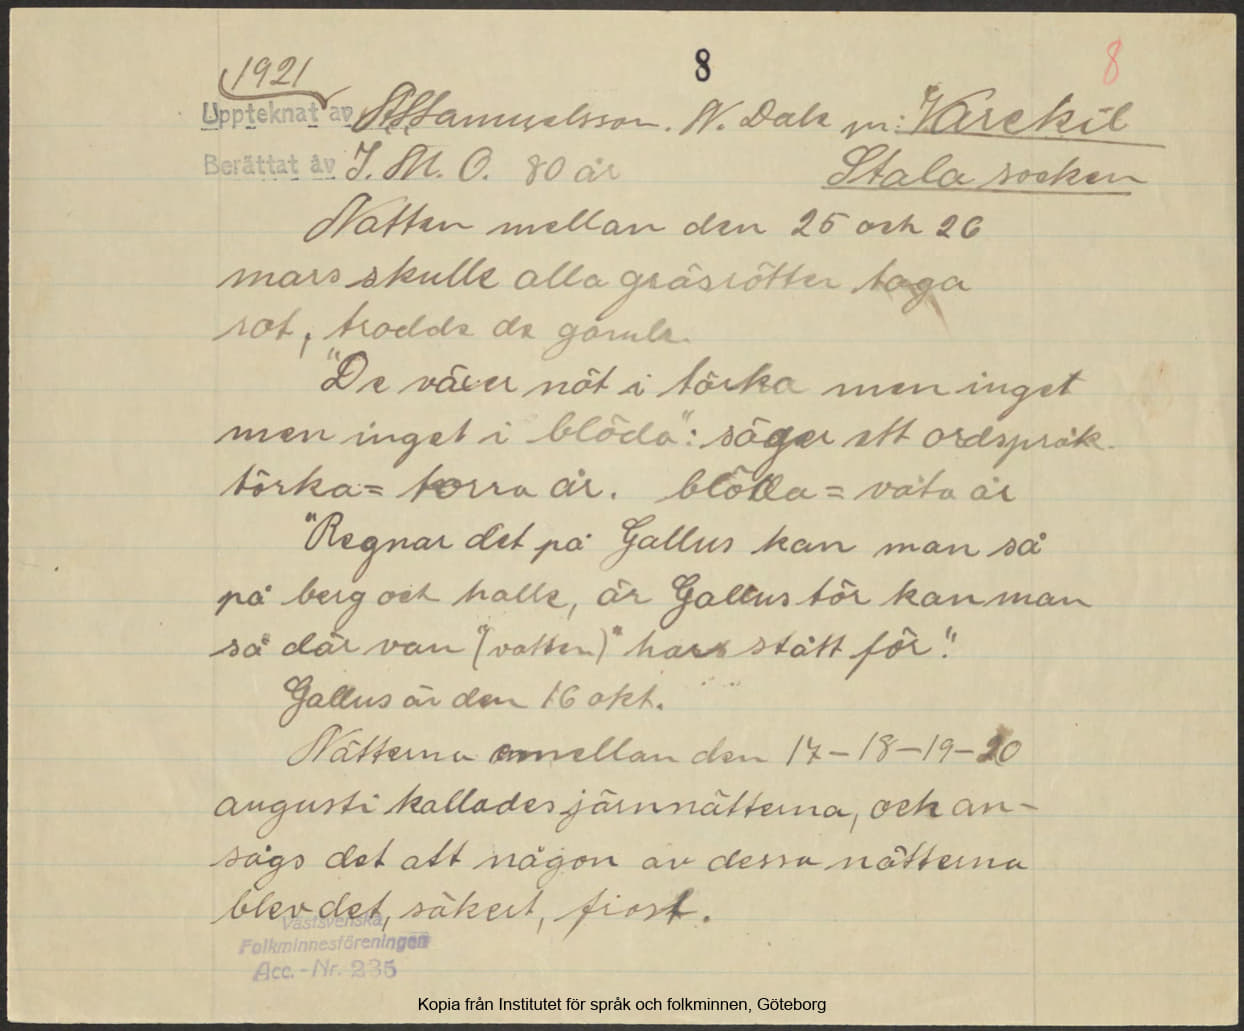 1921
8
8
Uppteknat av Samuelsson. N. Dale pr: Varekil
Berättat av J. M. O. 80 år
Stala socken
Natten mellan den 25 och 26
mars skulle alla gräsrötter taga
rot, trodde de gamle.
"De växer nöt i törka men inget
men inget i blöda": säger ett ordspråk.
törka = torra år. blöda = våta år
"Regnar det på Gallus kan man så
på berg och halle, är Gallus tör kan man
så där van "(vatten)" hars stått för".
Gallus är den 16 okt.
Nätterna mellan den 17-18-19-20
augusti kallades järnnätterna, och an-
sågs det att någon av dessa nätterna
blev det, säkert, frost.
Västsvenska
Folkminnesföreningen
Acc.-Nr. 235
Kopia från Institutet för språk och folkminnen, Göteborg